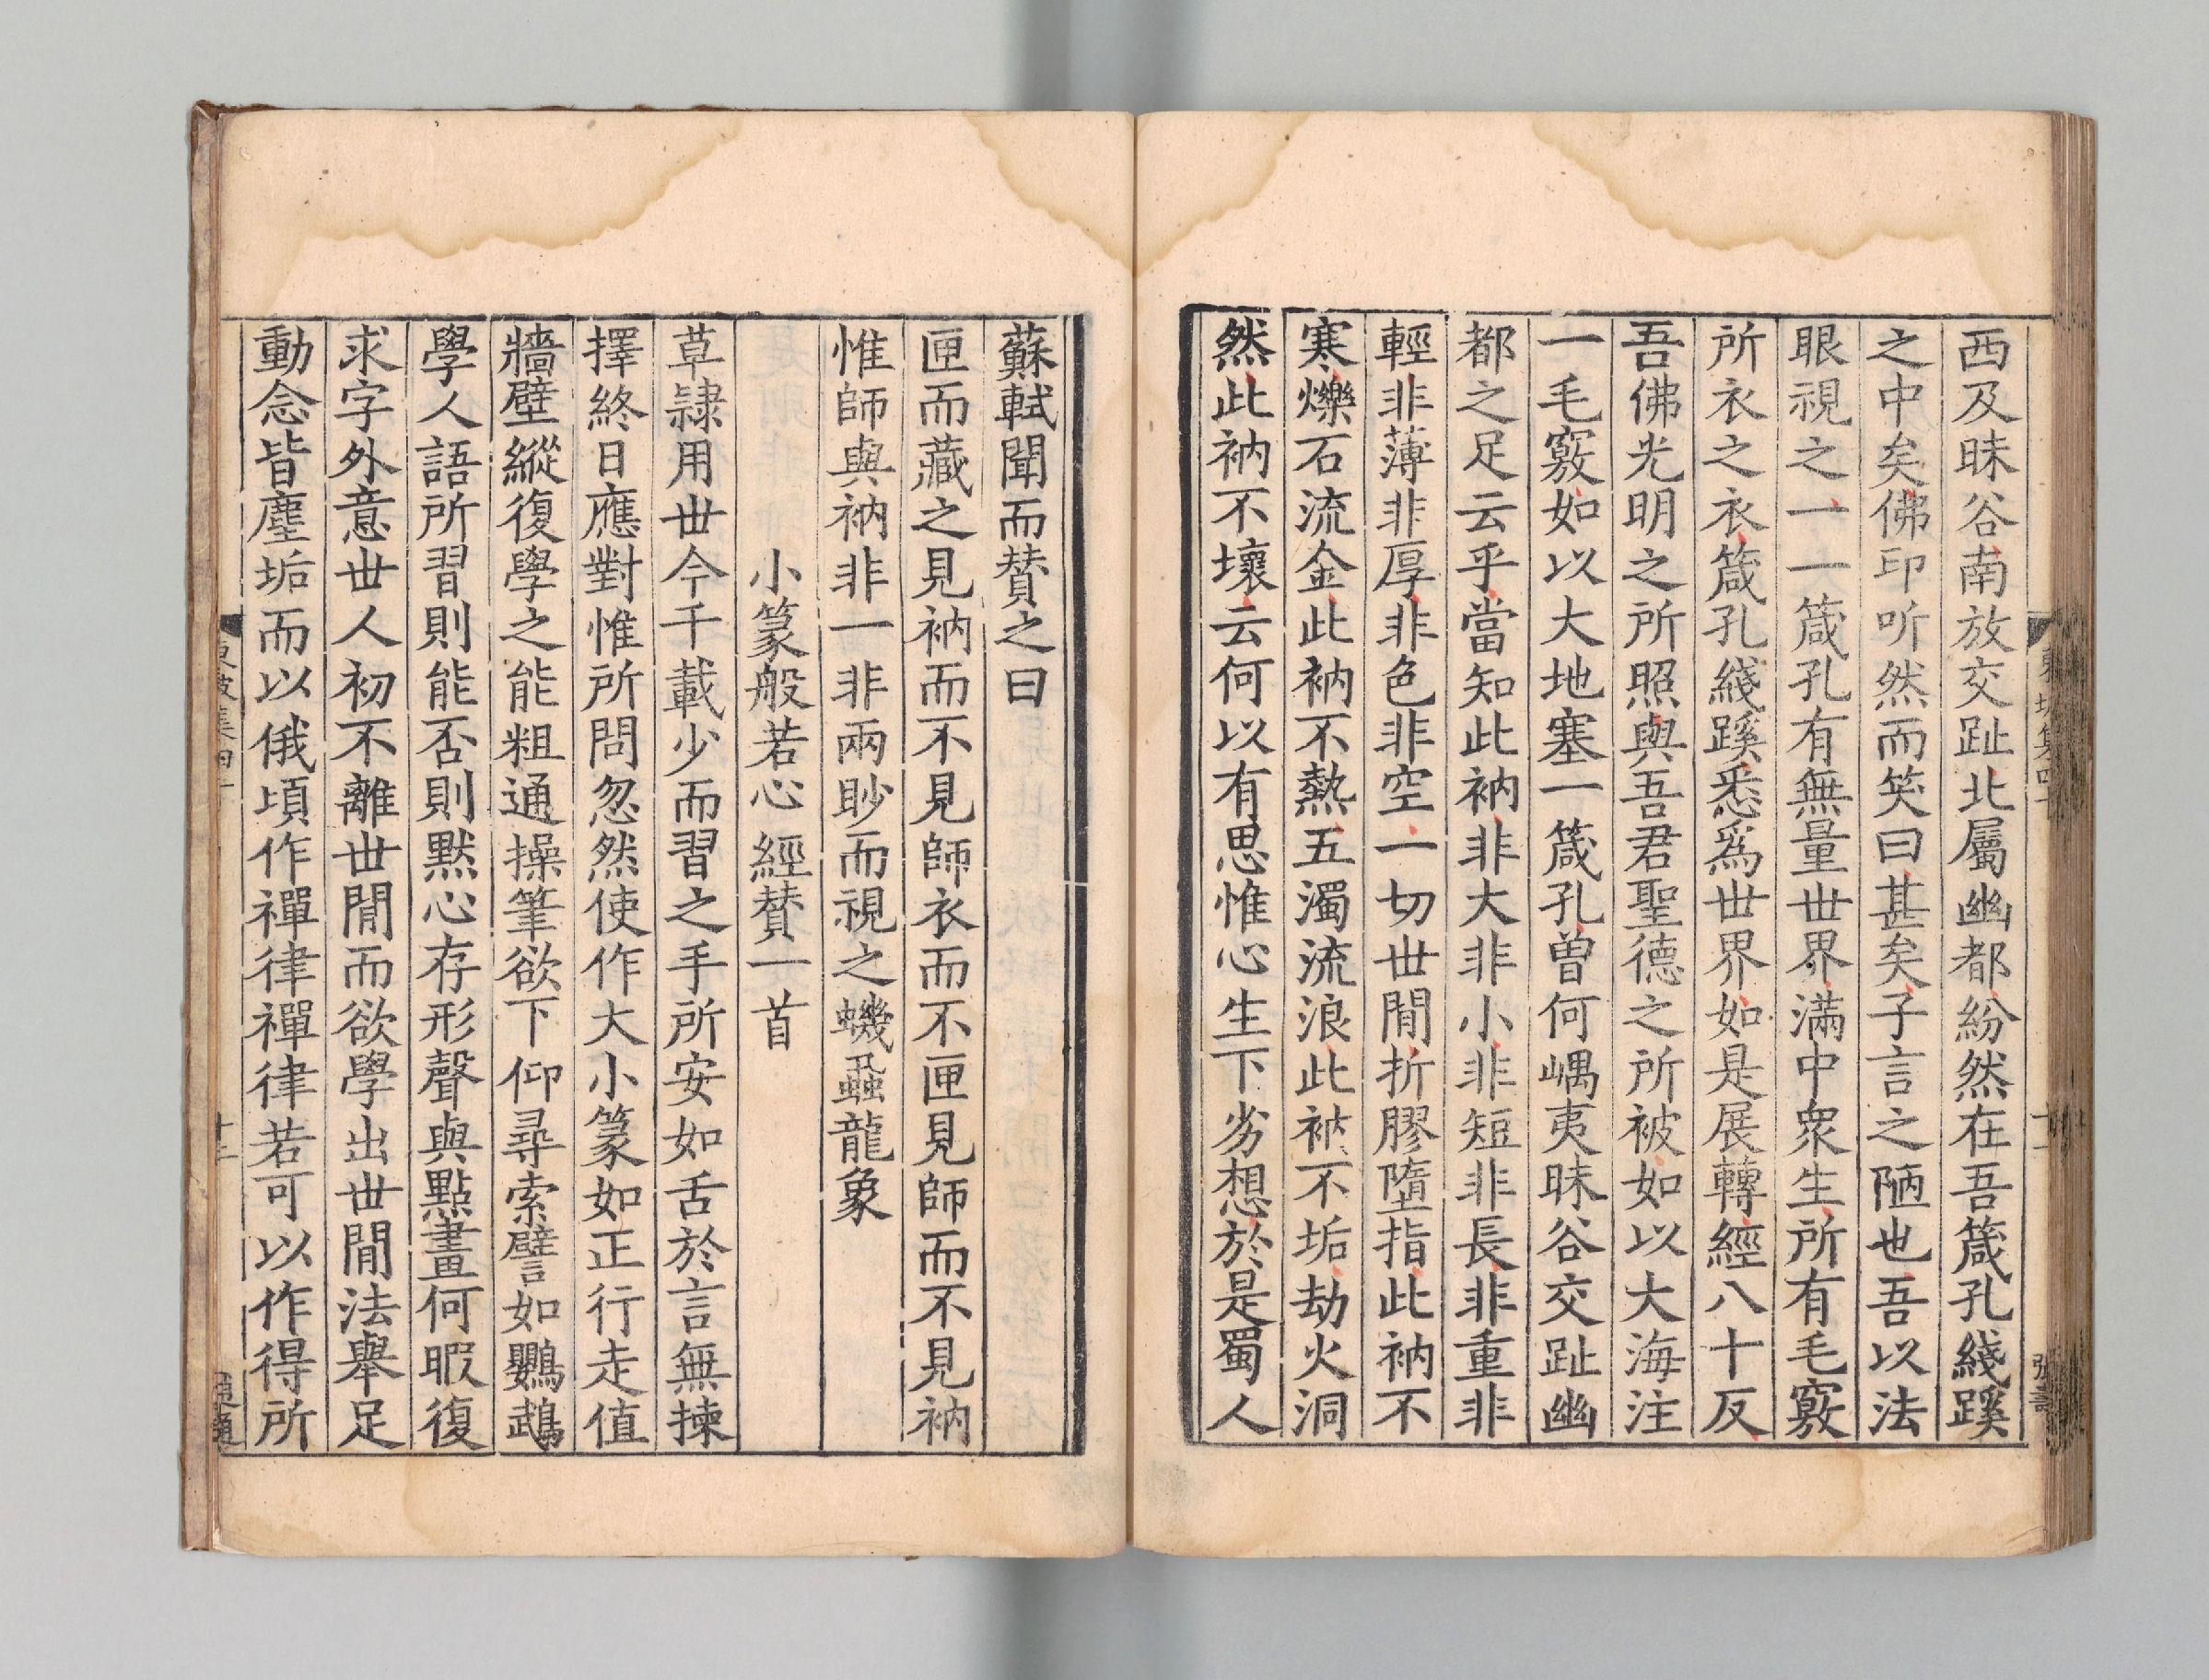 西及昧谷南放交趾北屬幽都紛然在吾箴孔綫蹊
之中矣佛印听然而笑曰甚矣子言之陋也吾以法
眼視之一一箴孔有無量世界滿中衆生所有毛竅
所衣之衣箴孔綫蹊悉爲世界如是展轉經八十反
吾佛光明之所照與吾君聖德之所被如以大海注
一毛竅如以大地塞一箴孔曾何嵎夷昧谷交趾幽
都之足云乎當知此衲非大非小非短非長非重非
輕非薄非厚非色非空一切世閒折膠墮指此衲不
寒爍石流金此衲不熱五濁流浪此衲不垢劫火洞
然此衲不壞云何以有思惟心生下劣想於是蜀人
蘇軾聞而贊之曰
匣而藏之見衲而不見師衣而不匣見師而不見衲
惟師與衲非一非兩眇而視之蟣蝨龍象
小篆般若心經贊一首
草隷用世今千載少而習之手所安如舌於言無揀
擇終日應對惟所問忽然使作大小篆如正行走值
牆壁縱復學之能粗通操筆欲下仰尋索譬如鸚鵡
學人語所習則能否則默心存形聲與點畫何暇復
求字外意世人初不離世閒而欲學出世閒法舉足
動念皆塵垢而以俄頃作禪律禪律若可以作得所